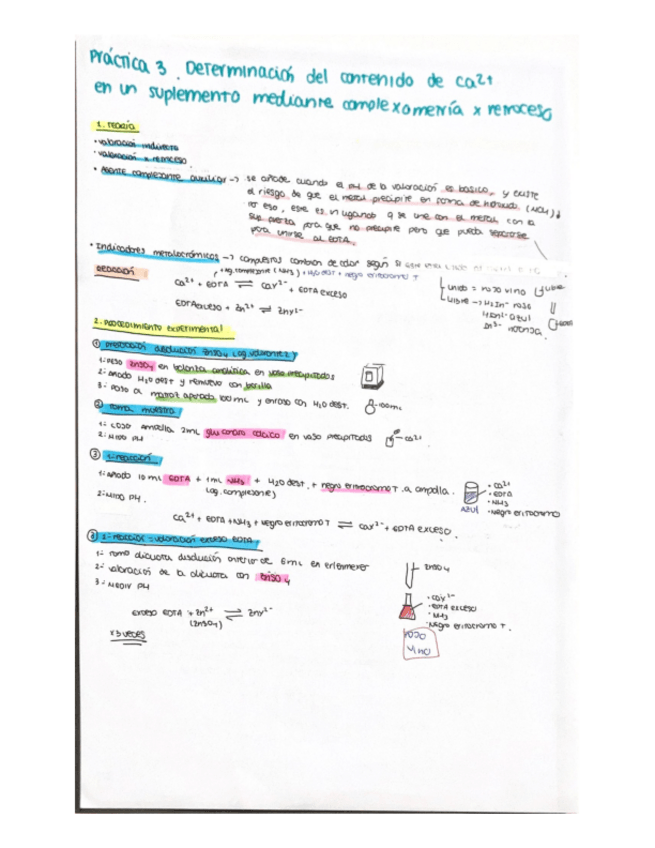 Práctica 3. Determinación del contenido de Ca2+
en un suplemento mediante complexometría x retroceso
1. teoría
· valoración indirecta
· valoración x retroceso.
· Agente complejante auxiliar → se añade cuando el pH de la valoración es básico, y existe
el riesgo de que el metal precipite en forma de hidróxido (M(OH)),
x eso, este es un ligando q se une con el metal con la
suf. fuerza para que no precipite pero que pueda separarse
para unirse al EDTA.
· Indicadores metalocrómicos → compuestos cambian de color según si
reacción
+ Ag. complejante (NH3) + H2O dest + negro eriocromo T
Ca2+ + EDTA ⇌ CaY2- + EDTA exceso
EDTA exceso + Zn2+ ⇌ ZnY2-
unido = rojo vino
libre → H2In- rojo
HIn2- azul
In3- naranja.
2. Procedimiento experimental
① preparación disolución ZnSO4 (ag. valorante)
1: Peso ZnSO4 en balanza analítica en vaso precipitados
2: añado H2O dest y remuevo con varilla
3: Paso a matraz aforado 100mL y enraso con H2O dest.
100mL
② toma muestra
1: cojo ampolla 2mL gluconato cálcico en vaso precipitados
2: mido PH
Ca2+
③ 1: reacción
1: añado 10 mL EDTA + 1mL NH3 + H2O dest. + negro eriocromo T a ampolla.
(ag. complejante)
2: mido PH.
· Ca2+
· EDTA
· NH3
· Negro eriocromo
AZUL
Ca2+ + EDTA + NH3 + negro eriocromo T ⇌ CaY2- + EDTA exceso.
2: reacción = valoración exceso EDTA
1: tomo alícuota disolución anterior de 6mL en erlenmeyer
2: valoración de la alícuota con ZnSO4
3: MEDIR PH
ZnSO4
· CaY2-
· EDTA exceso
· NH3
· Negro eriocromo T.
ROJO
VINO
exceso EDTA + Zn2+ ⇌ ZnY2-
(ZnSO4)
x3 veces